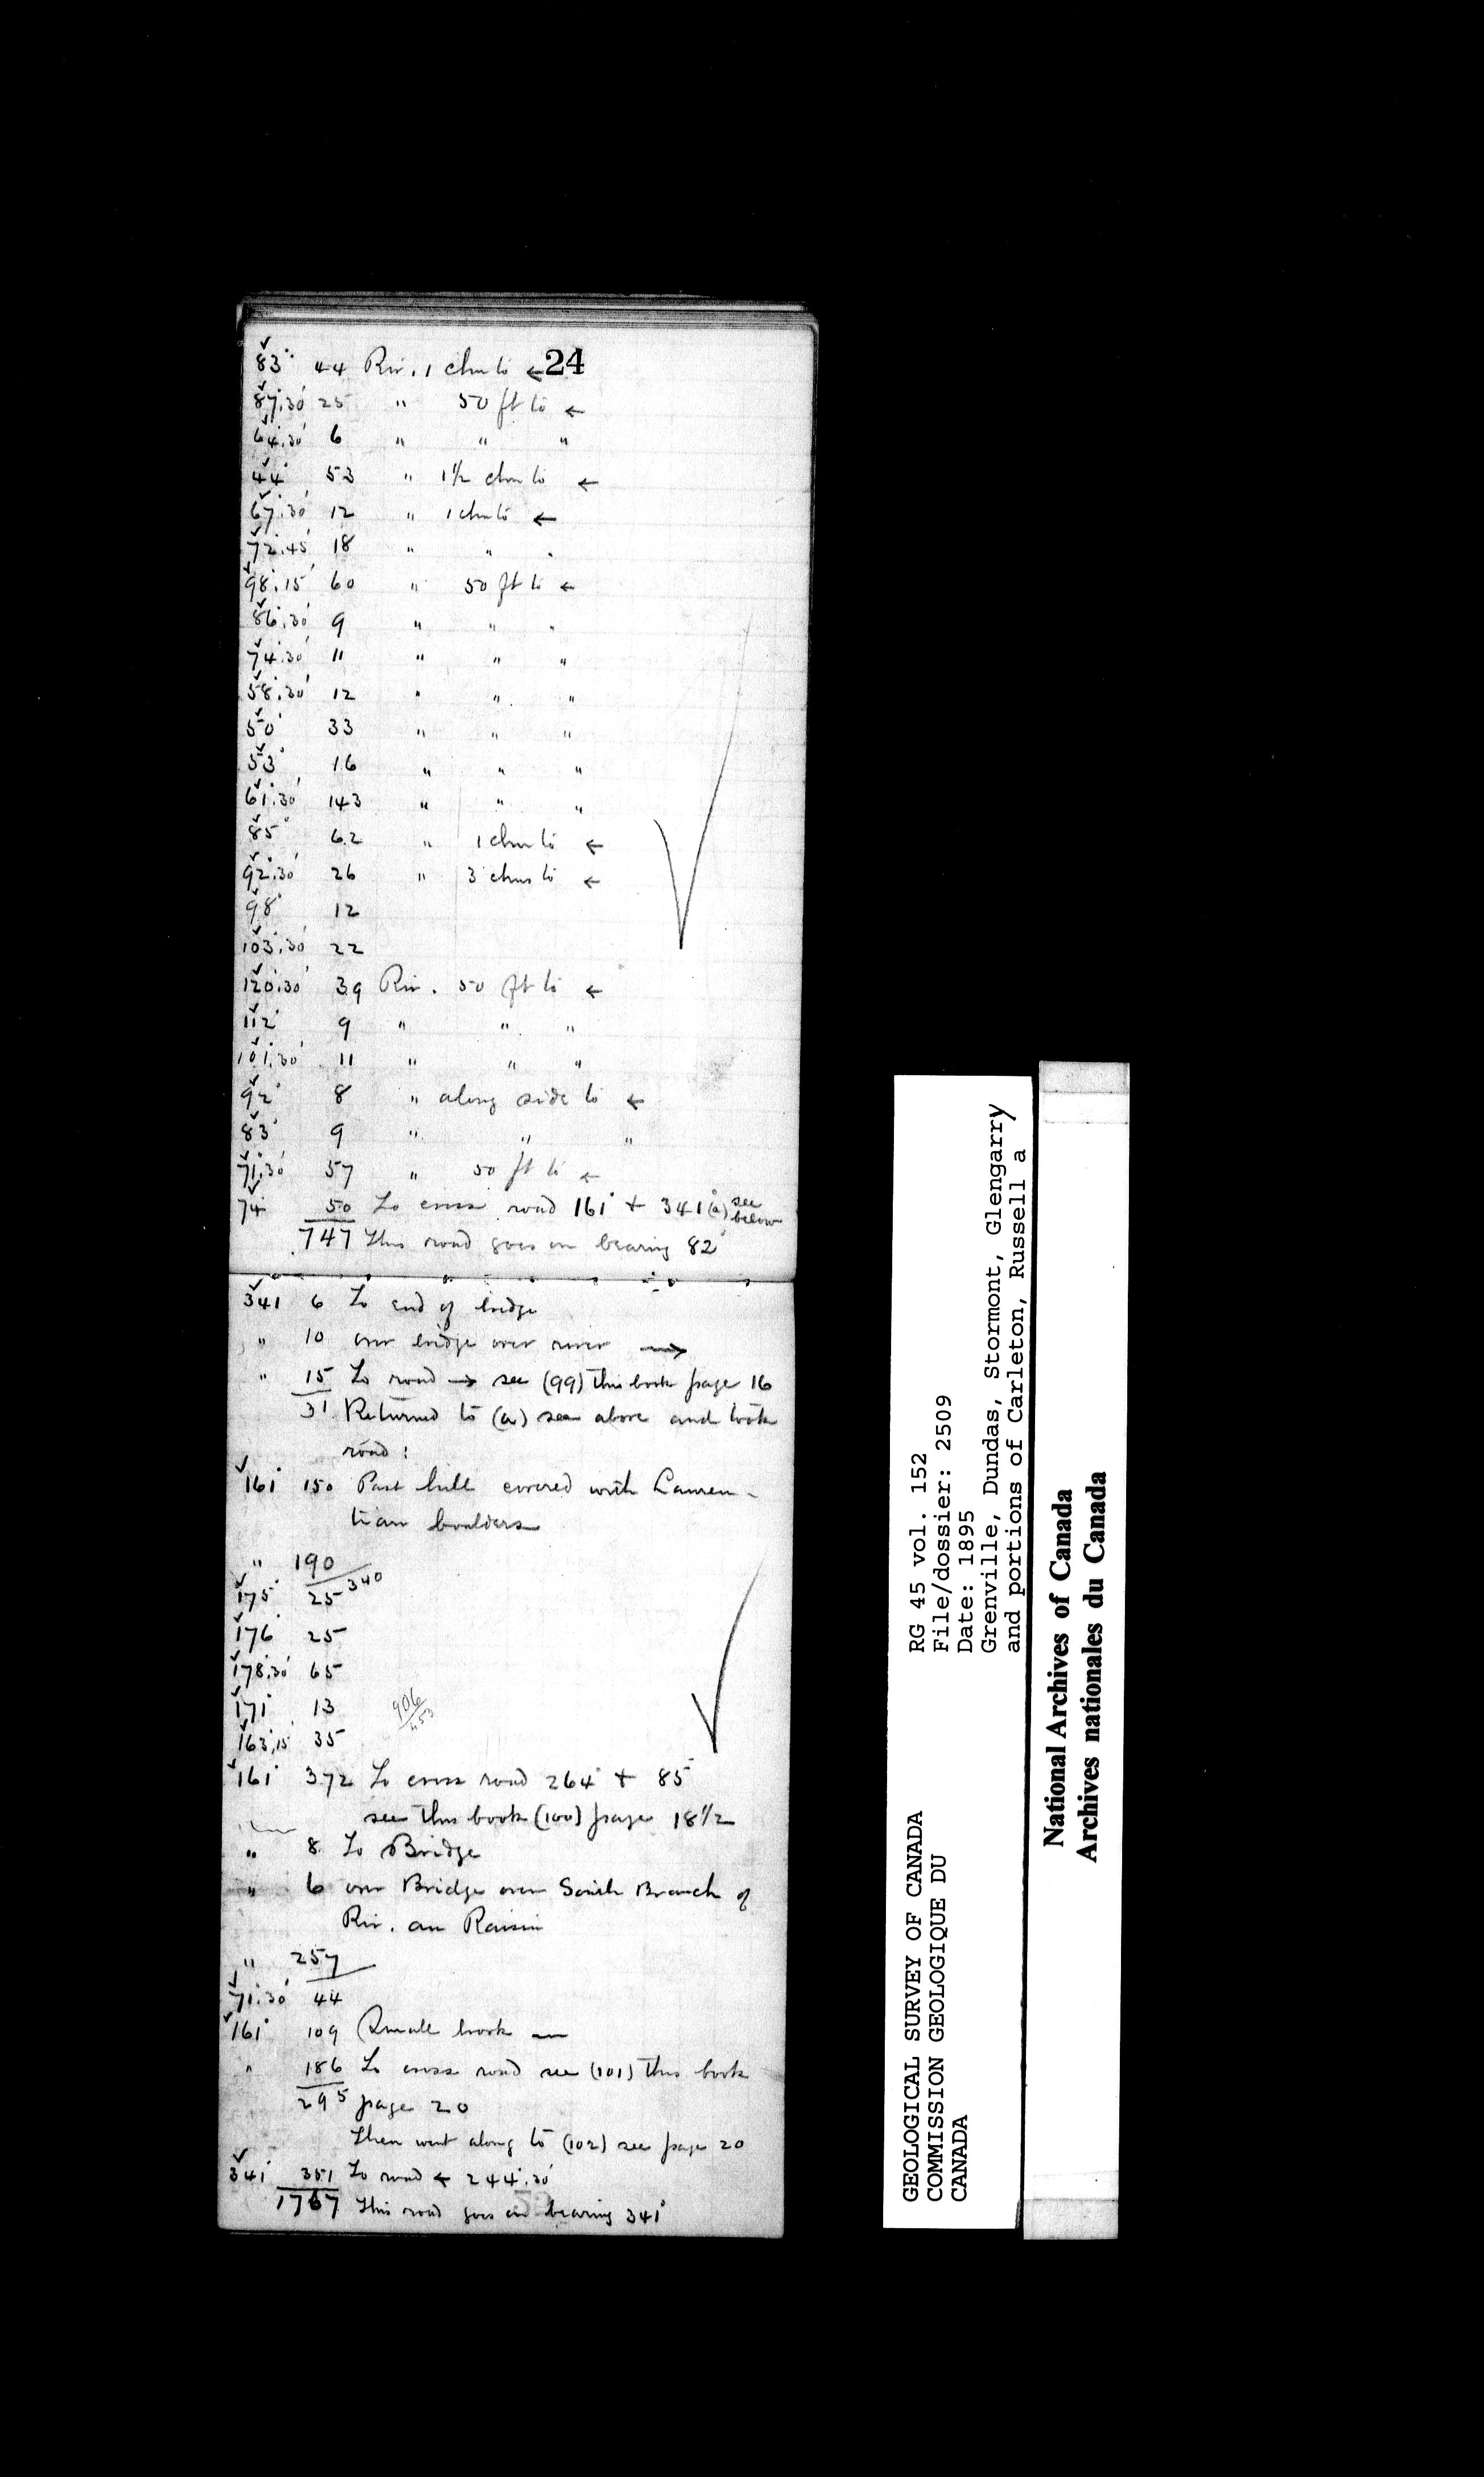 24
83° 44 Riv. 1 chn to ←
87°.30' 25 " 50 ft to ←
64°.30' 6 " " "
44° 53 " 1½ chn to ←
67°.30' 12 " 1 chn to ←
72°.45' 18 " " "
98°.15' 60 " 50 ft to ←
86°.30' 9 " " "
74°.30' 11 " " "
58°.30' 12 " " "
50° 33 " " "
53° 16 " " "
61°.30' 143 " " "
85° 62 " 1 chn to ←
92°.30' 26 " 3 chns to ←
98° 12
103°.30' 22
120°.30' 39 Riv. 50 ft to ←
112° 9 " " "
101°.30' 11 " " "
92° 8 " along side to ←
83° 9 " " "
71°.30' 57 " 50 ft to ←
74° 50 To cross road 161° + 341° (a) see below
747 This road goes on bearing 82°
341 6 To end of bridge
" 10 over bridge over river →
" 15 To road → see (99) this book page 16
31 Returned to (a) see above and took
road:
161° 150 Past hill covered with Lauren-
tian boulders
" 190
340
175° 25
176 25
178°.30' 65
171° 13
906
453
163°.15' 35
161° 372 To cross road 264° + 85°
see this book (100) page 18½
" 8 To Bridge
" 6 over Bridge over South Branch of
Riv. au Raisin
" 257
71°.30' 44
161° 109 Small brook
" 186 To cross road see (101) this book
295 page 20
Then went along to (102) see page 20
341° 351 To road ← 244°.30'
1767 This road goes on bearing 341°
GEOLOGICAL SURVEY OF CANADA
COMMISSION GEOLOGIQUE DU
CANADA
RG 45 vol. 152
File/dossier: 2509
Date: 1895
Grenville, Dundas, Stormont, Glengarry
and portions of Carleton, Russell a
National Archives of Canada
Archives nationales du Canada